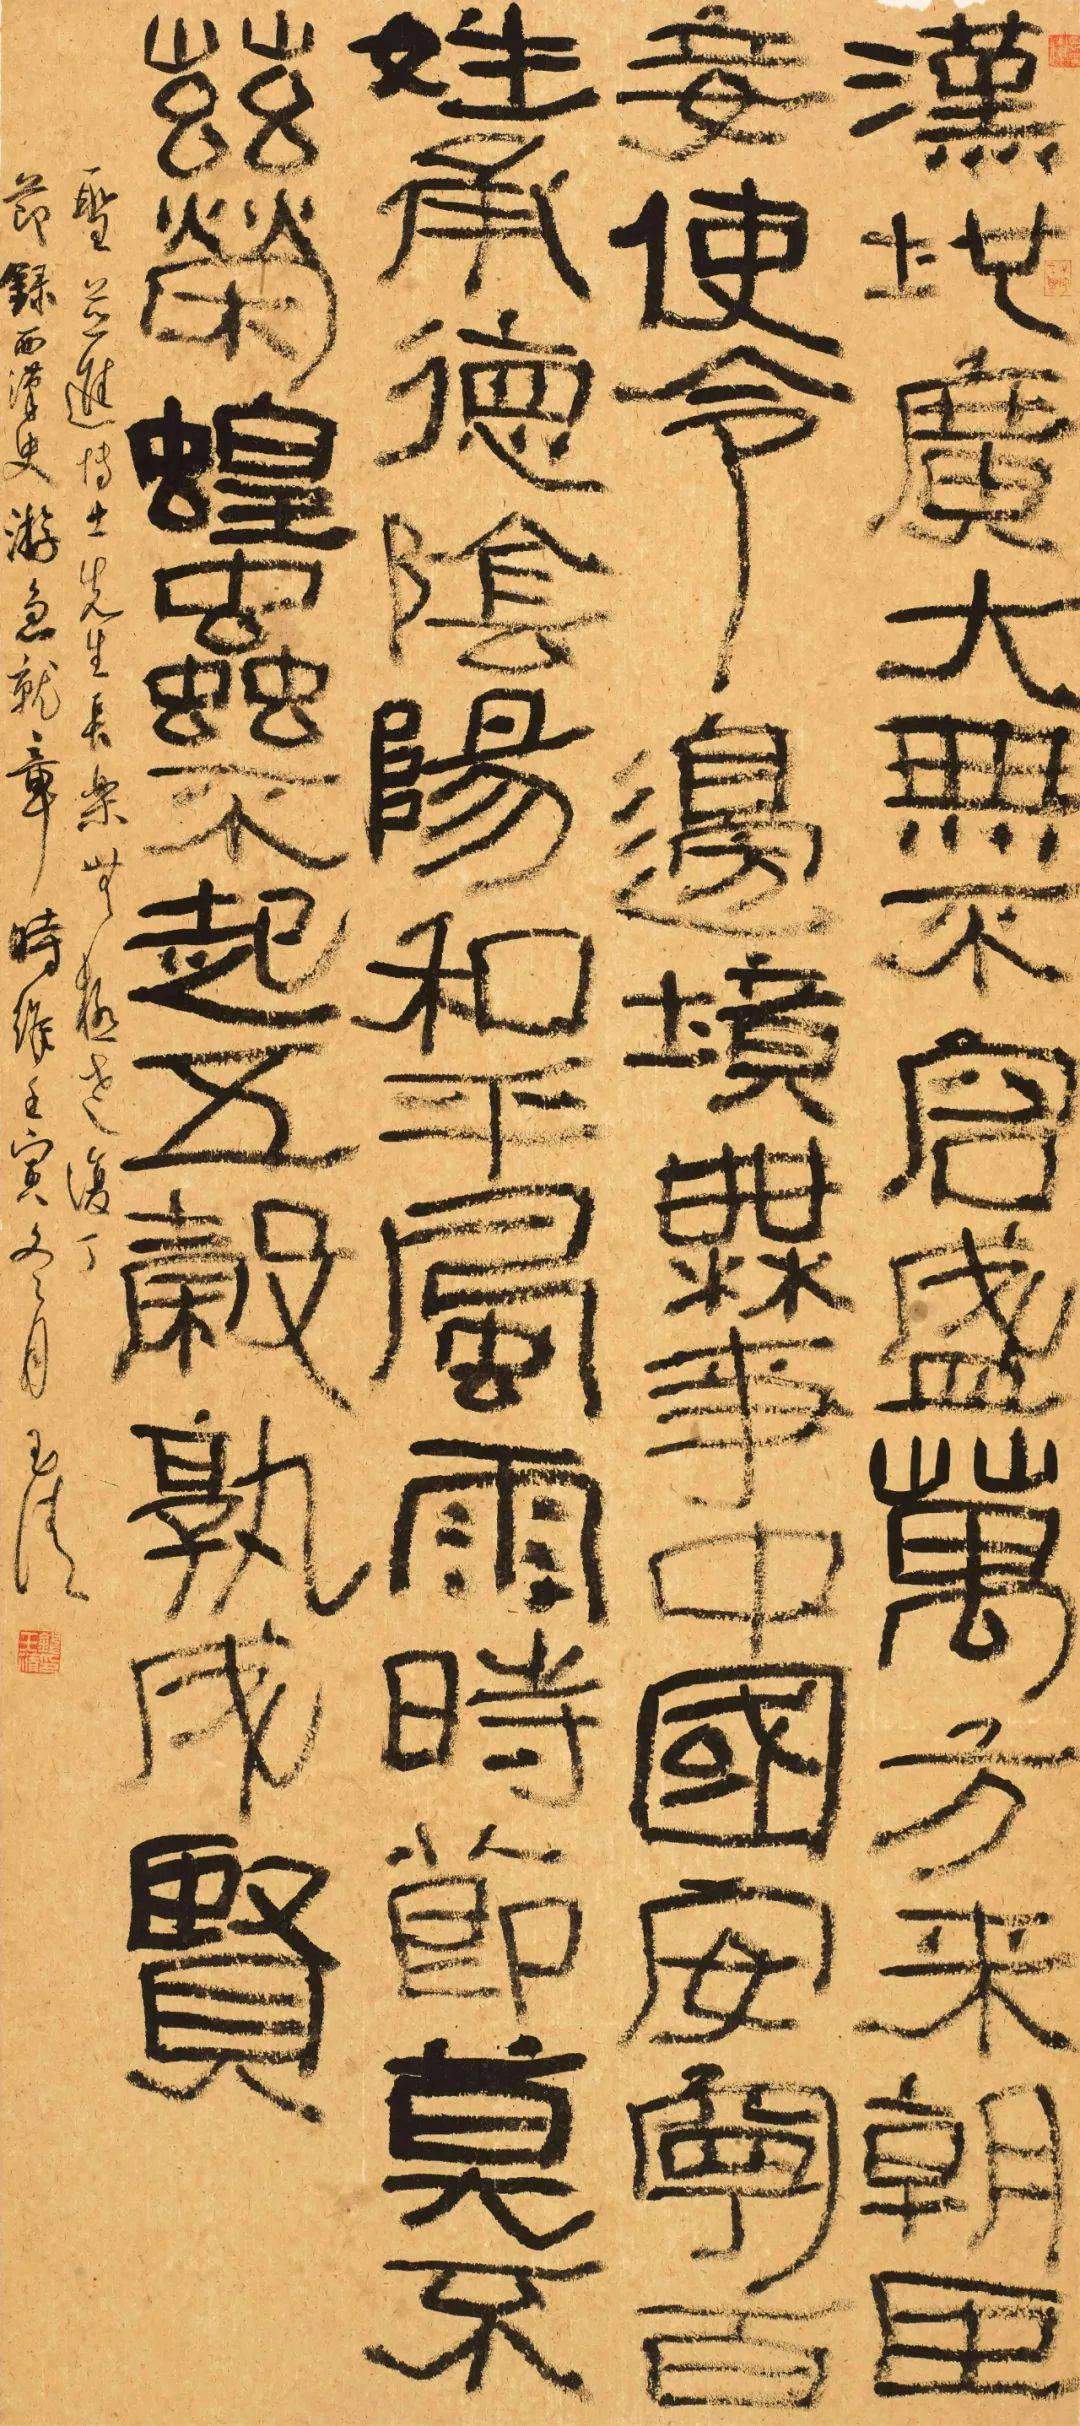 漢地廣大無不容盛萬方来朝臣
妾使令邊境無事中國安寧百
姓承德陰陽和平風雨時節莫不
茲榮蝗蟲不起五穀孰成賢
聖並進博士先生長樂無極老復丁
節録西漢史游急就章時維壬寅冬月